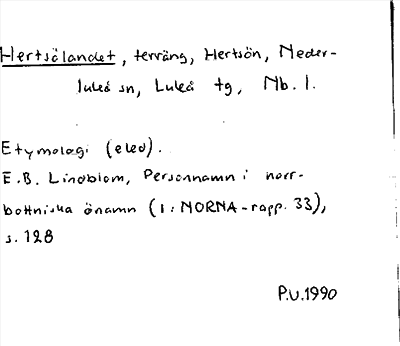 Hertsölandet, terräng, Hertsön, Neder-
luleå sn, Luleå tg, Nb. l.
Etymologi (eled).
E.B. Lindblom, Personnamn i norr-
bottniska önamn (I: NORNA-rapp. 33),
s. 128
P.U. 1990